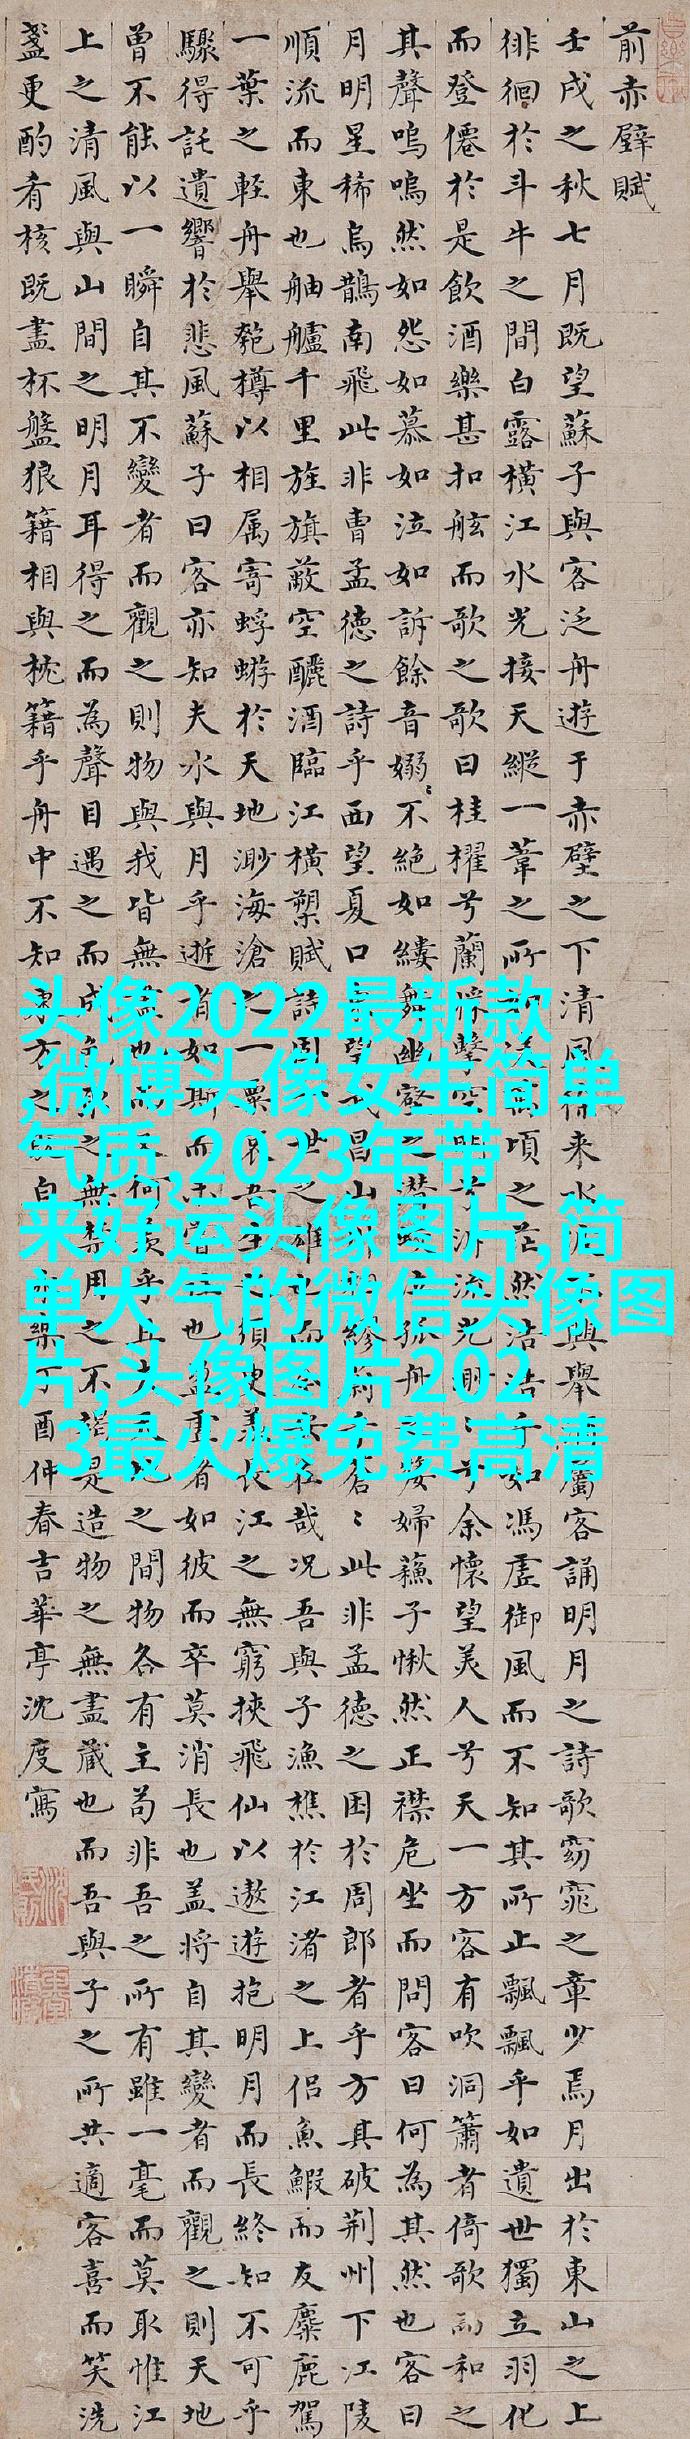 前赤壁賦
壬戌之秋七月既望蘇子與客泛舟遊于赤壁之下清風來水興舉屬客誦明月之詩歌窈窕之章少焉月出於東山之上
徘徊於斗牛之間白露橫江水光接天縱一葦之所頃之茫然浩浩乎如馮虛御風而不知其所止飄飄乎如遺世獨立羽化
而登僊於是飲酒樂甚扣舷而歌之歌曰桂櫂兮蘭槳擊空明兮泝流光兮余懷望美人兮天一方客有吹洞簫者倚歌而和之
其聲嗚嗚然如怨如慕如泣如訴餘音嫋〻不絕如縷舞幽壑之潛孤舟嫠婦蘇子愀然正襟危坐而問客曰何為其然也客曰
月明星稀烏鵲南飛此非曹孟德之詩乎西望夏口望武昌山繆蒼〻此非孟德之困於周郎者乎方其破荊州下江陵
順流而東也舳艫千里旌旗蔽空釃酒臨江橫槊賦詩固世之雄而安在哉況吾與子漁樵於江渚之上侶魚鰕而友麋鹿駕
一葉之輕舟舉匏樽以相属寄蜉蝣於天地渺海滄之一粟哀吾生須臾羨長江之無窮挾飛仙以遨遊抱明月而長終知不可乎
驟得託遺響於悲風蘇子曰客亦知夫水與月乎逝者如斯而未嘗也盈虛者如彼而卒莫消長也盖將自其變者而觀之則天地
曾不能以一瞬自其不變者而觀之則物與我皆無盡也何羨乎且之間物各有主苟非吾之所有雖一毫而莫取惟江
上之清風與山間之明月耳得之而為聲目遇之而成色取之無禁用之不竭是造物之無盡藏也而吾與子之所共適客喜而笑洗
盞更酌肴核既盡杯盤狼籍相與枕籍乎舟中不知東方之白樂丁酉仲春吉華亭沈度寫
头像2022最新款
,微博头像女生简单
气质,2023年带
来好运头像图片,简
单大气的微信头像图
片,头像图片202
3最火爆免费高清